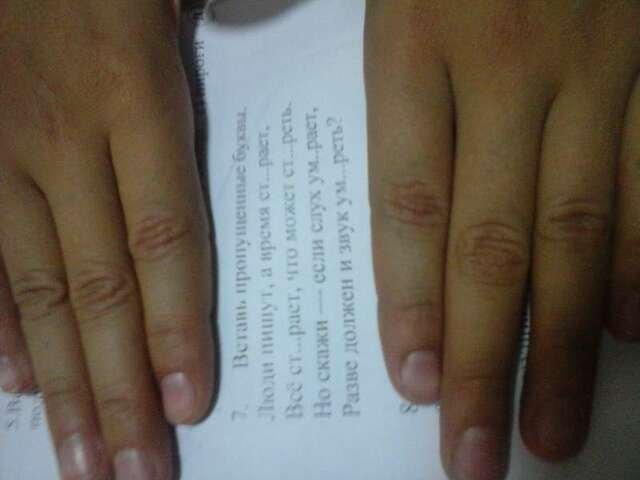 7. Вставь пропущенные буквы.
Люди пишут, а время ст...раст,
Всё ст...раст, что может ст...реть.
Но скажи — если слух ум..раст,
Разве должен и звук ум...реть?
8.